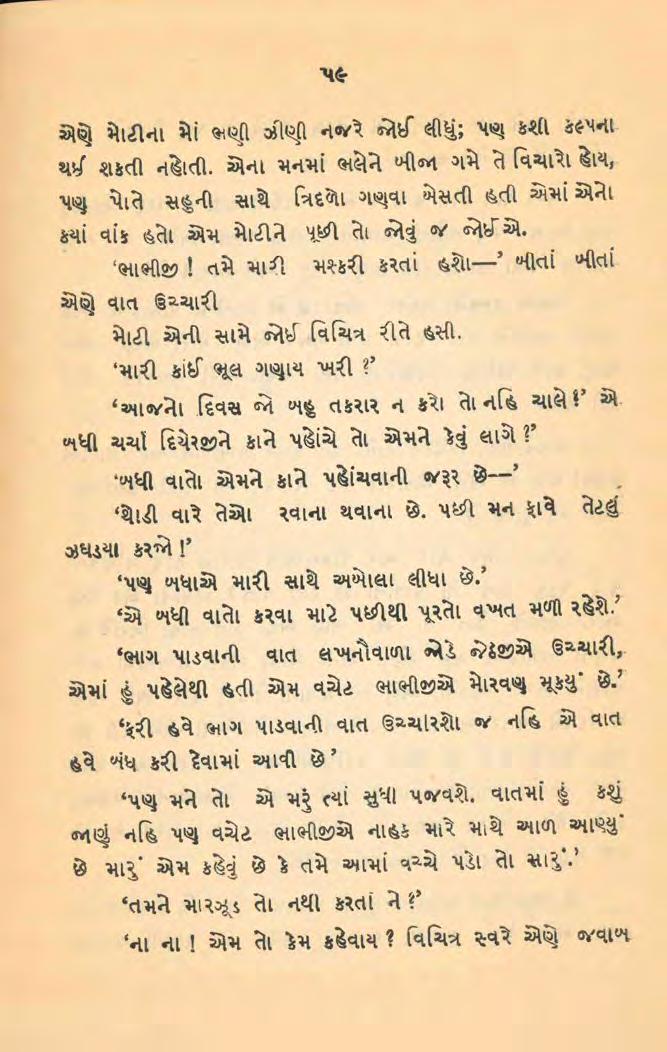 ૫૯
એણે મોટીના મેાં ભણી ઝીણી નજરે જોઈ લીધું; પણ કશી કલ્પના
થઈ શકતી નહોતી. એના મનમાં ભલેને બીજા ગમે તે વિચારો હોય,
પણ પોતે સહુની સાથે ત્રિદળો ગણવા બેસતી હતી એમાં એનો
કયાં વાંક હતો એમ મોટીને પૂછી તો જોવું જ જોઈએ.
‘ભાભીજી ! તમે મારી મશ્કરી કરતાં હશો—’ બીતાં બીતાં
એણે વાત ઉચ્ચારી
મોટી એની સામે જોઈ વિચિત્ર રીતે હસી.
‘મારી કાંઈ ભૂલ ગણાય ખરી ?’
‘આજનો દિવસ જો બહુ તકરાર ન કરો તો નહિ ચાલે ?’ એ
બધી ચર્ચા દિયેરજીને કાને પહોંચે તો એમને કેવું લાગે ?’
‘બધી વાતો એમને કાને પહોંચવાની જરૂર છે—’
‘થોડી વારે તેઓ રવાના થવાના છે. પછી મન ફાવે તેટલું
ઝઘડયા કરજો !’
‘પણ બધાએ મારી સાથે અબોલા લીધા છે.’
‘એ બધી વાતો કરવા માટે પછીથી પૂરતો વખત મળી રહેશે.’
‘ભાગ પાડવાની વાત લખનૌવાળા જોડે જેઠજીએ ઉચ્ચારી,
એમાં હું પહેલેથી હતી એમ વચેટ ભાભીજીએ મોરવણ મૂકયું છે.’
‘ફરી હવે ભાગ પાડવાની વાત ઉચ્ચારશો જ નહિ એ વાત
હવે બંધ કરી દેવામાં આવી છે’
‘પણ મને તો એ મરૂં ત્યાં સુધી પજવશે. વાતમાં હું કશું
જાણું નહિ પણ વચેટ ભાભીજીએ નાહક મારે માથે આળ આણ્યું
છે મારું એમ કહેવું છે કે તમે આમાં વચ્ચે પડો તો સારું.’
‘તમને મારઝૂડ તો નથી કરતાં ને ?’
‘ના ના ! એમ તો કેમ કહેવાય ? વિચિત્ર સ્વરે એણે જવાબ